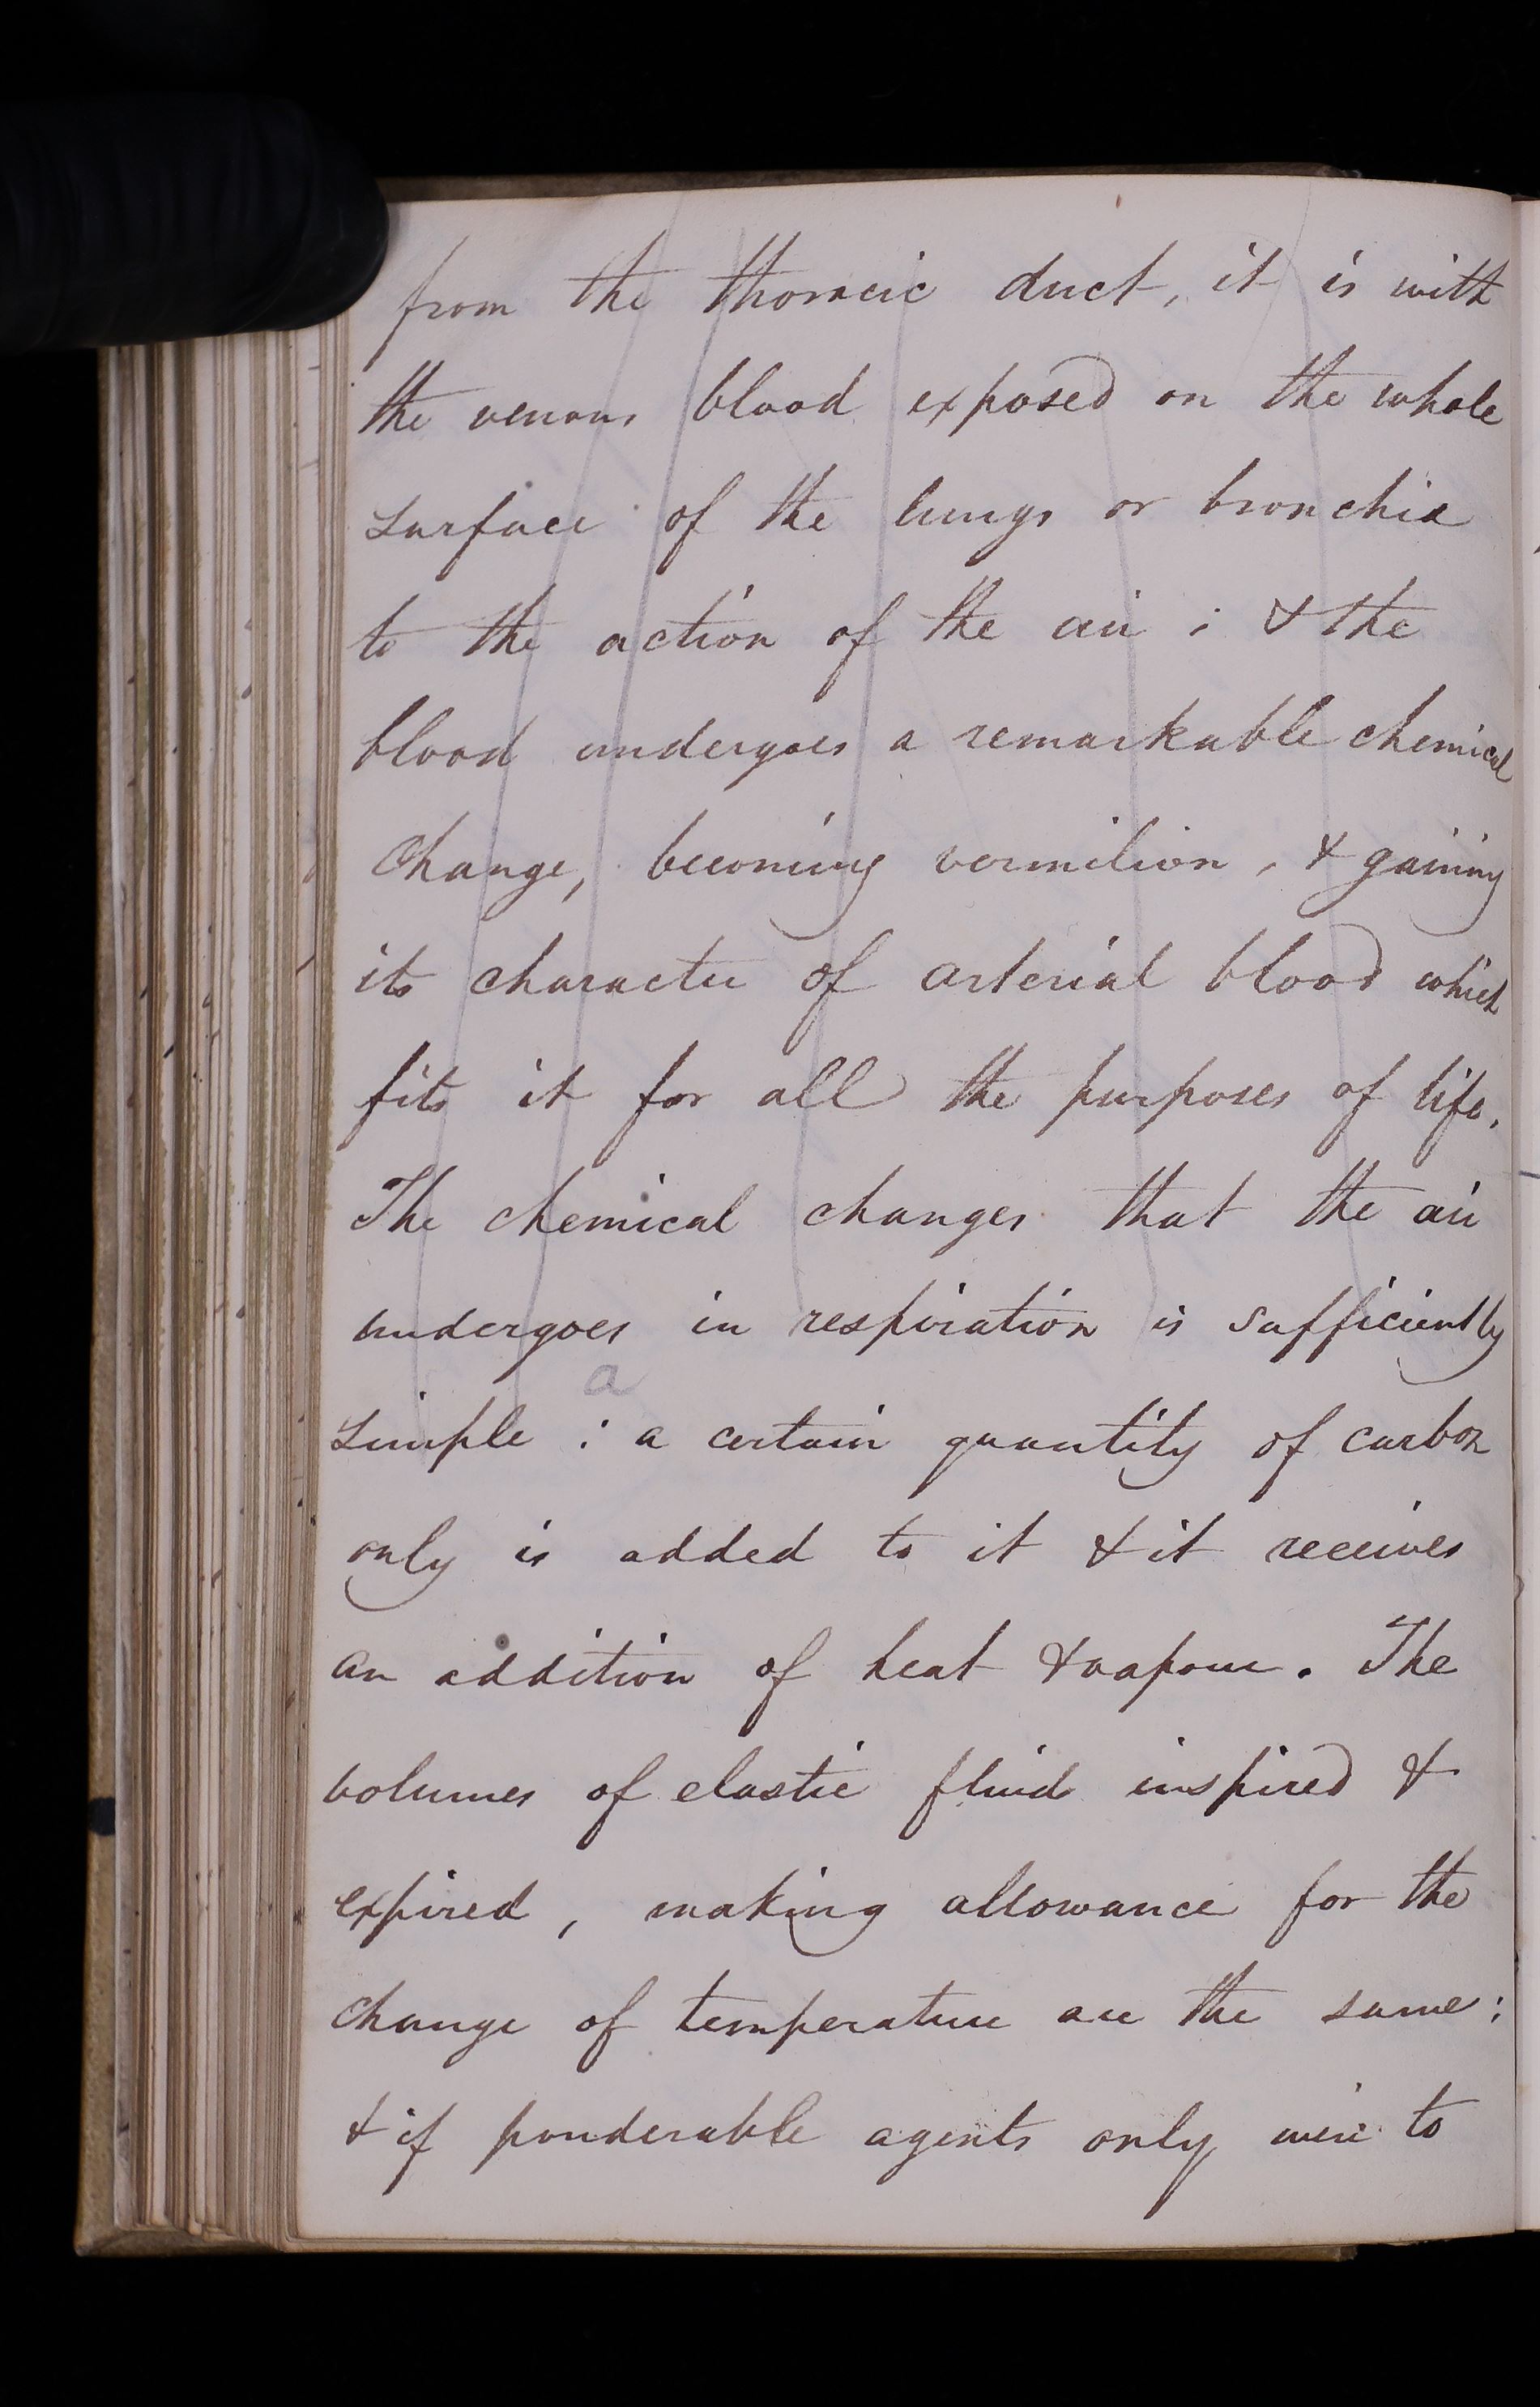 from the thoracic duct, it is with
the venous blood exposed on the whole
surface of the lungs or bronchia
to the action of the air ; & the
blood undergoes a remarkable chemical
change, becoming vermilion, & gaining
its character of arterial blood which
fits it for all the purposes of life.
The chemical changes that the air
undergoes in respiration is sufficiently
a
simple : a certain quantity of carbon
only is added to it & it receives
an addition of heat & vapour. The
volumes of elastic fluid inspired &
expired, making allowance for the
change of temperature are the same:
& if ponderable agents only were to